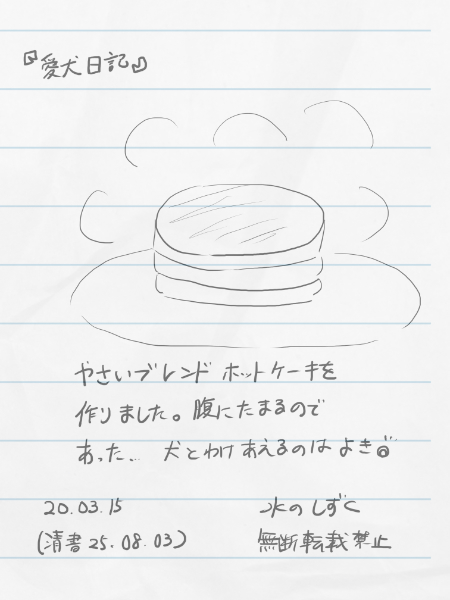 『愛犬日記』
やさいブレンド ホットケーキを
作りました。腹にたまるので
あった… 犬とわけあえるのはよき◎
20.03.15
水のしずく
(清書25.08.03)
無断転載禁止